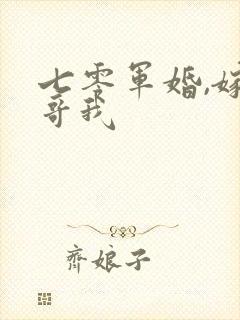 七零军婚,嫁
哥我
齐娘子